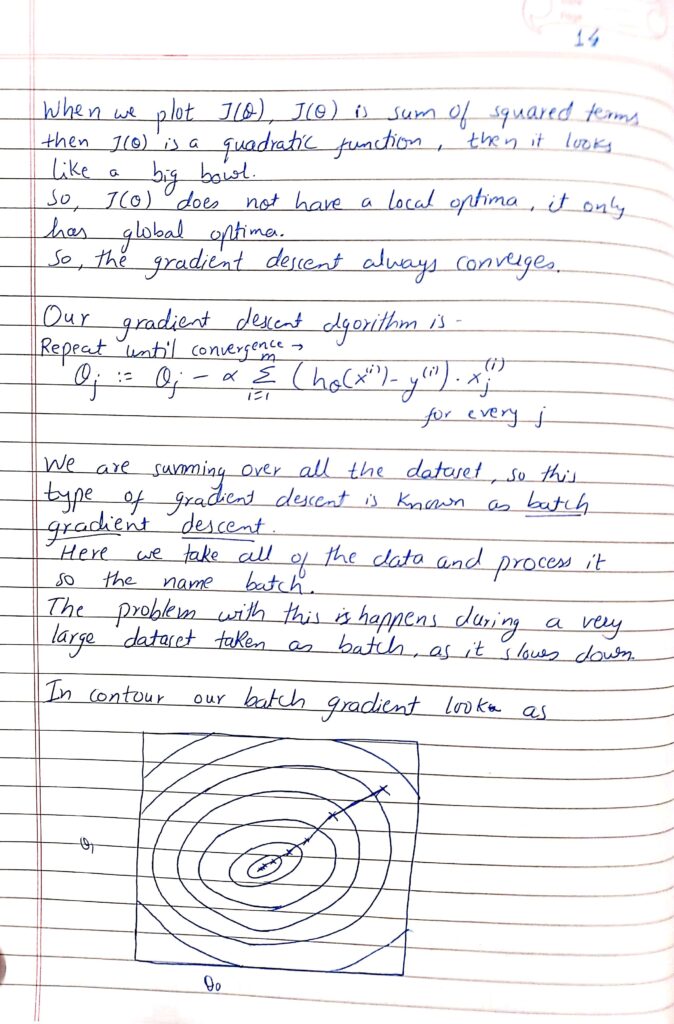 14
When we plot J(θ), J(θ) is sum of squared terms
then J(θ) is a quadratic function, then it looks
like a big bowl.
So, J(θ) does not have a local optima, it only
has global optima.
So, the gradient descent always converges.
Our gradient descent algorithm is -
Repeat until convergence →
θj := θj - α Σ_{i=1}^{m} (hθ(x^(i)) - y^(i)) · xj^(i)
for every j
We are summing over all the dataset, so this
type of gradient descent is known as batch
gradient descent.
Here we take all of the data and process it
so the name batch.
The problem with this is happens during a very
large dataset taken as batch, as it slows down.
In contour our batch gradient look as
θ1
θ0